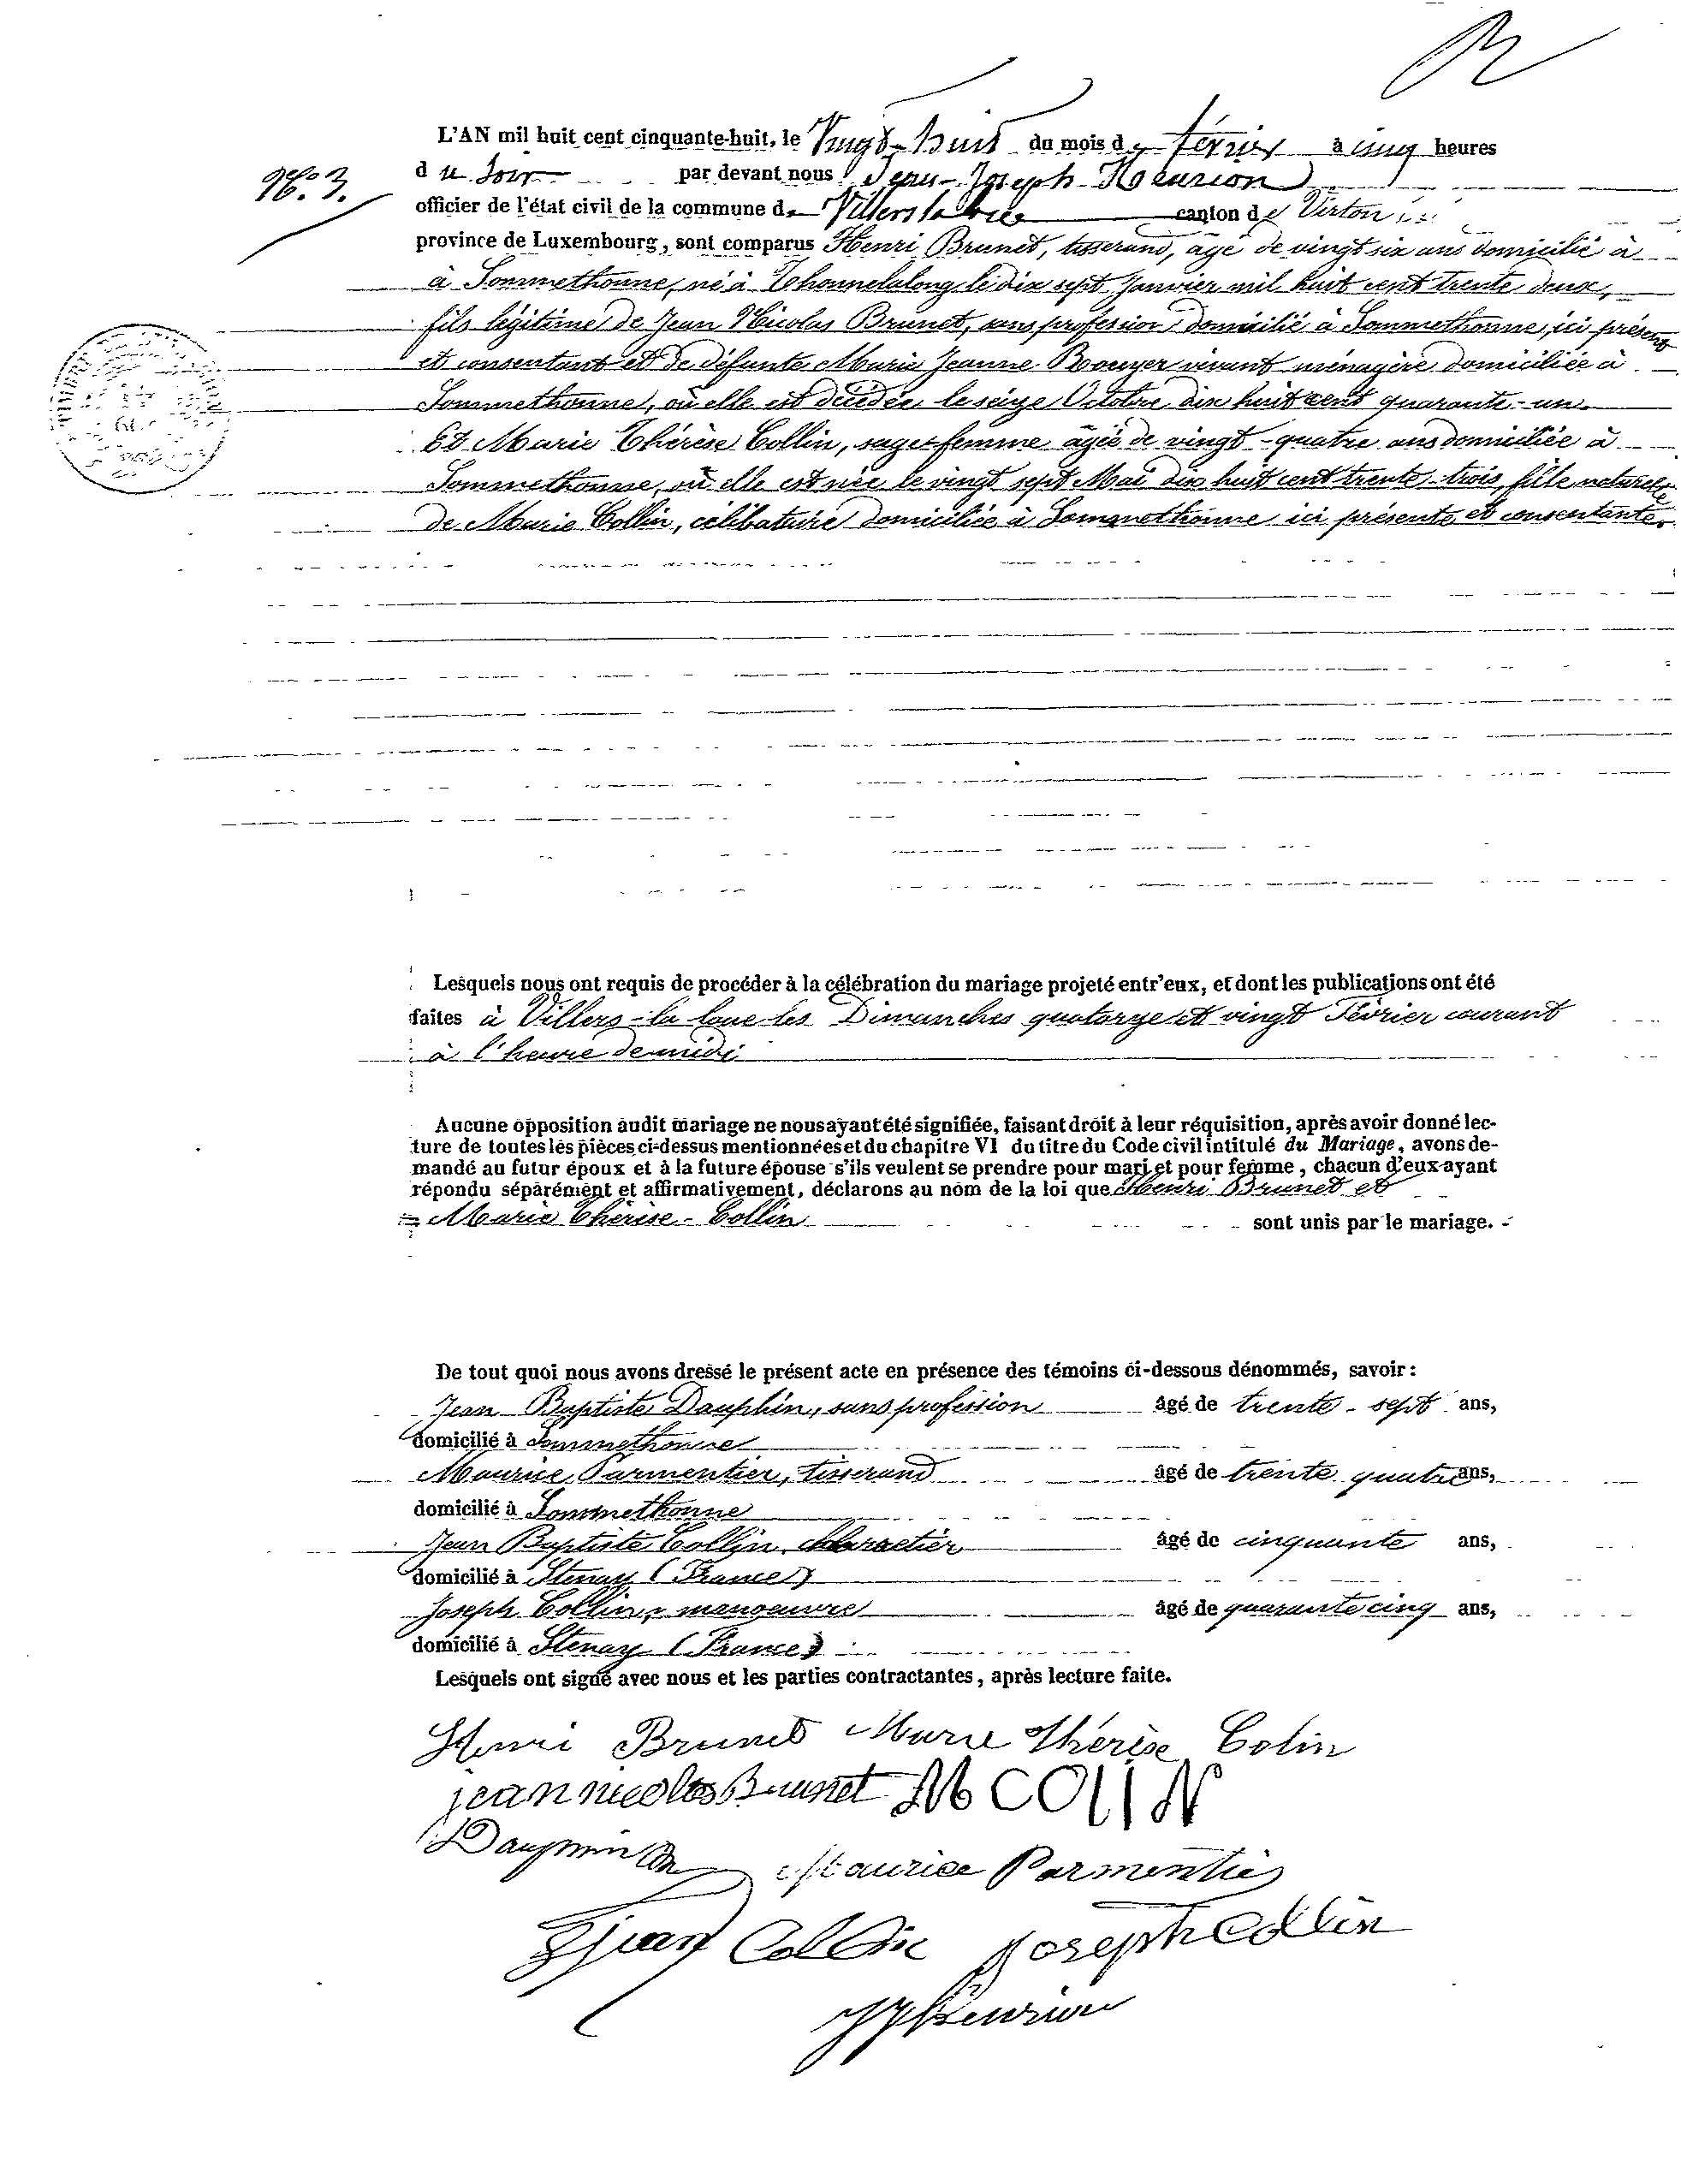 L'AN mil huit cent cinquante-huit, le Vingt-huit du mois de février à cinq heures
N.° 3.
du soir par devant nous Jean-Joseph Henrion
officier de l'état civil de la commune de Villers la loue canton de Virton
province de Luxembourg, sont comparus Henri Brunet, tisserand, âgé de vingt six ans domicilié à
à Sommethonne, né à Thonnelalong le dix sept Janvier mil huit cent trente deux,
fils légitime de Jean Nicolas Brunet, sans profession domicilié à Sommethonne, ici présent
et consentant et de défunte Marie Jeanne Rouyer vivant ménagère domiciliée à
Sommethonne, où elle est décédée le seize Octobre dix huit cent quarante-un
Et Marie Thérèse Collin, sage-femme âgée de vingt-quatre ans domiciliée à
Sommethonne, où elle est née le vingt sept Mai dix huit cent trente-trois, fille naturelle
de Marie Collin, célibataire domiciliée à Sommethonne ici présente et consentante.
Lesquels nous ont requis de procéder à la célébration du mariage projeté entr'eux, et dont les publications ont été
faites à Villers-la loue les Dimanches quatorze et vingt Février courant
à l'heure de midi
Aucune opposition audit mariage ne nous ayant été signifiée, faisant droit à leur réquisition, après avoir donné lec-
ture de toutes les pièces ci-dessus mentionnées et du chapitre VI du titre du Code civil intitulé du Mariage, avons de-
mandé au futur époux et à la future épouse s'ils veulent se prendre pour mari et pour femme, chacun d'eux ayant
répondu séparément et affirmativement, déclarons au nom de la loi que Henri Brunet et
Marie Thérèse-Collin sont unis par le mariage.
De tout quoi nous avons dressé le présent acte en présence des témoins ci-dessous dénommés, savoir:
Jean Baptiste Dauphin, sans profession âgé de trente-sept ans,
domicilié à Sommethonne
Maurice Parmentier, tisserand âgé de trente quatre ans,
domicilié à Sommethonne
Jean Baptiste Collin, charretier âgé de cinquante ans,
domicilié à Stenay (France)
Joseph Collin, manoeuvre âgé de quarante cinq ans,
domicilié à Stenay (France)
Lesquels ont signé avec nous et les parties contractantes, après lecture faite.
Henri Brunet Marie Thérèse Colin
jean nicolas Brunet M COlIN
Dauphin Maurice Parmentier
jean Collin joseph Collin
JJ Henrion